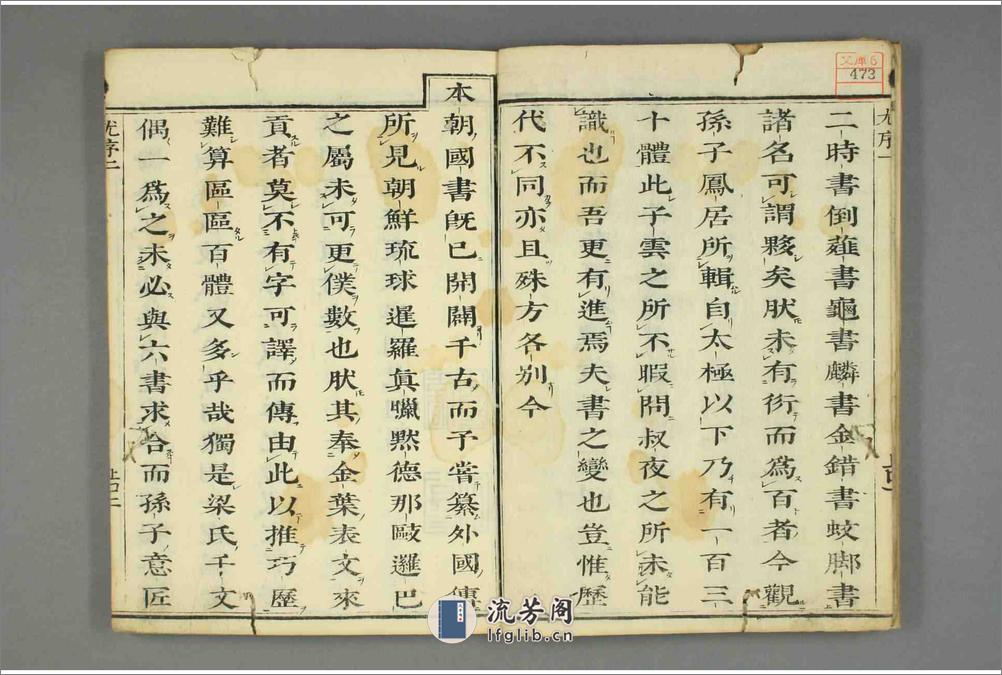 文庫6
473
尤序一
二時書倒薤書龜書麟書金錯書蚊脚書
諸名可謂夥矣肰未有衍而爲百者今觀
孫子鳳居所輯自太極以下乃有一百三
十體此子雲之所不暇問叔夜之所未能
識也而吾更有進焉夫書之變也豈惟歷
代不同亦且殊方各別今
本朝國書旣已開闢千古而予嘗纂外國傳
所見朝鮮琉球暹羅眞臘㸃德那敺邏巴
之屬未可更僕數也肰其奉金葉表文來
貢者莫不有字可譯而傳由此以推巧歷
難算區區百體又多乎哉獨是梁氏千文
偶一爲之未必與六書求合而孫子意匠
尤序二
流芳阁
lfglib.cn